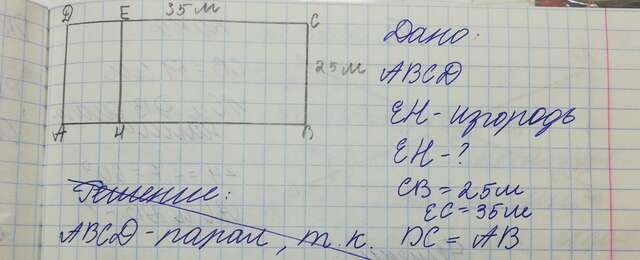 D E 35м C
25м
A H B
Дано:
ABCD
EH - изгородь
EH - ?
CB = 25м
EC = 35м
Решение:
ABCD - парал, т.к. DC = AB